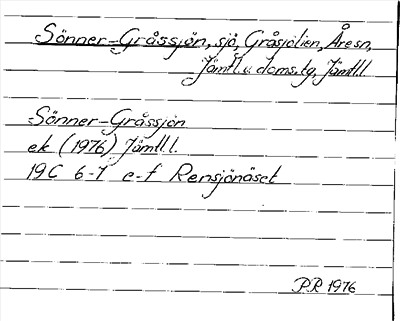 Sönner-Gråssjön, sjö, Gråsjölien, Åresn,
Jämtl. v. doms.tg, Jämtl.l.
Sönner-Gråssjön
ek (1976) Jämtl.l.
19C 6-7 e-f Rensjönäset
P.R 1976